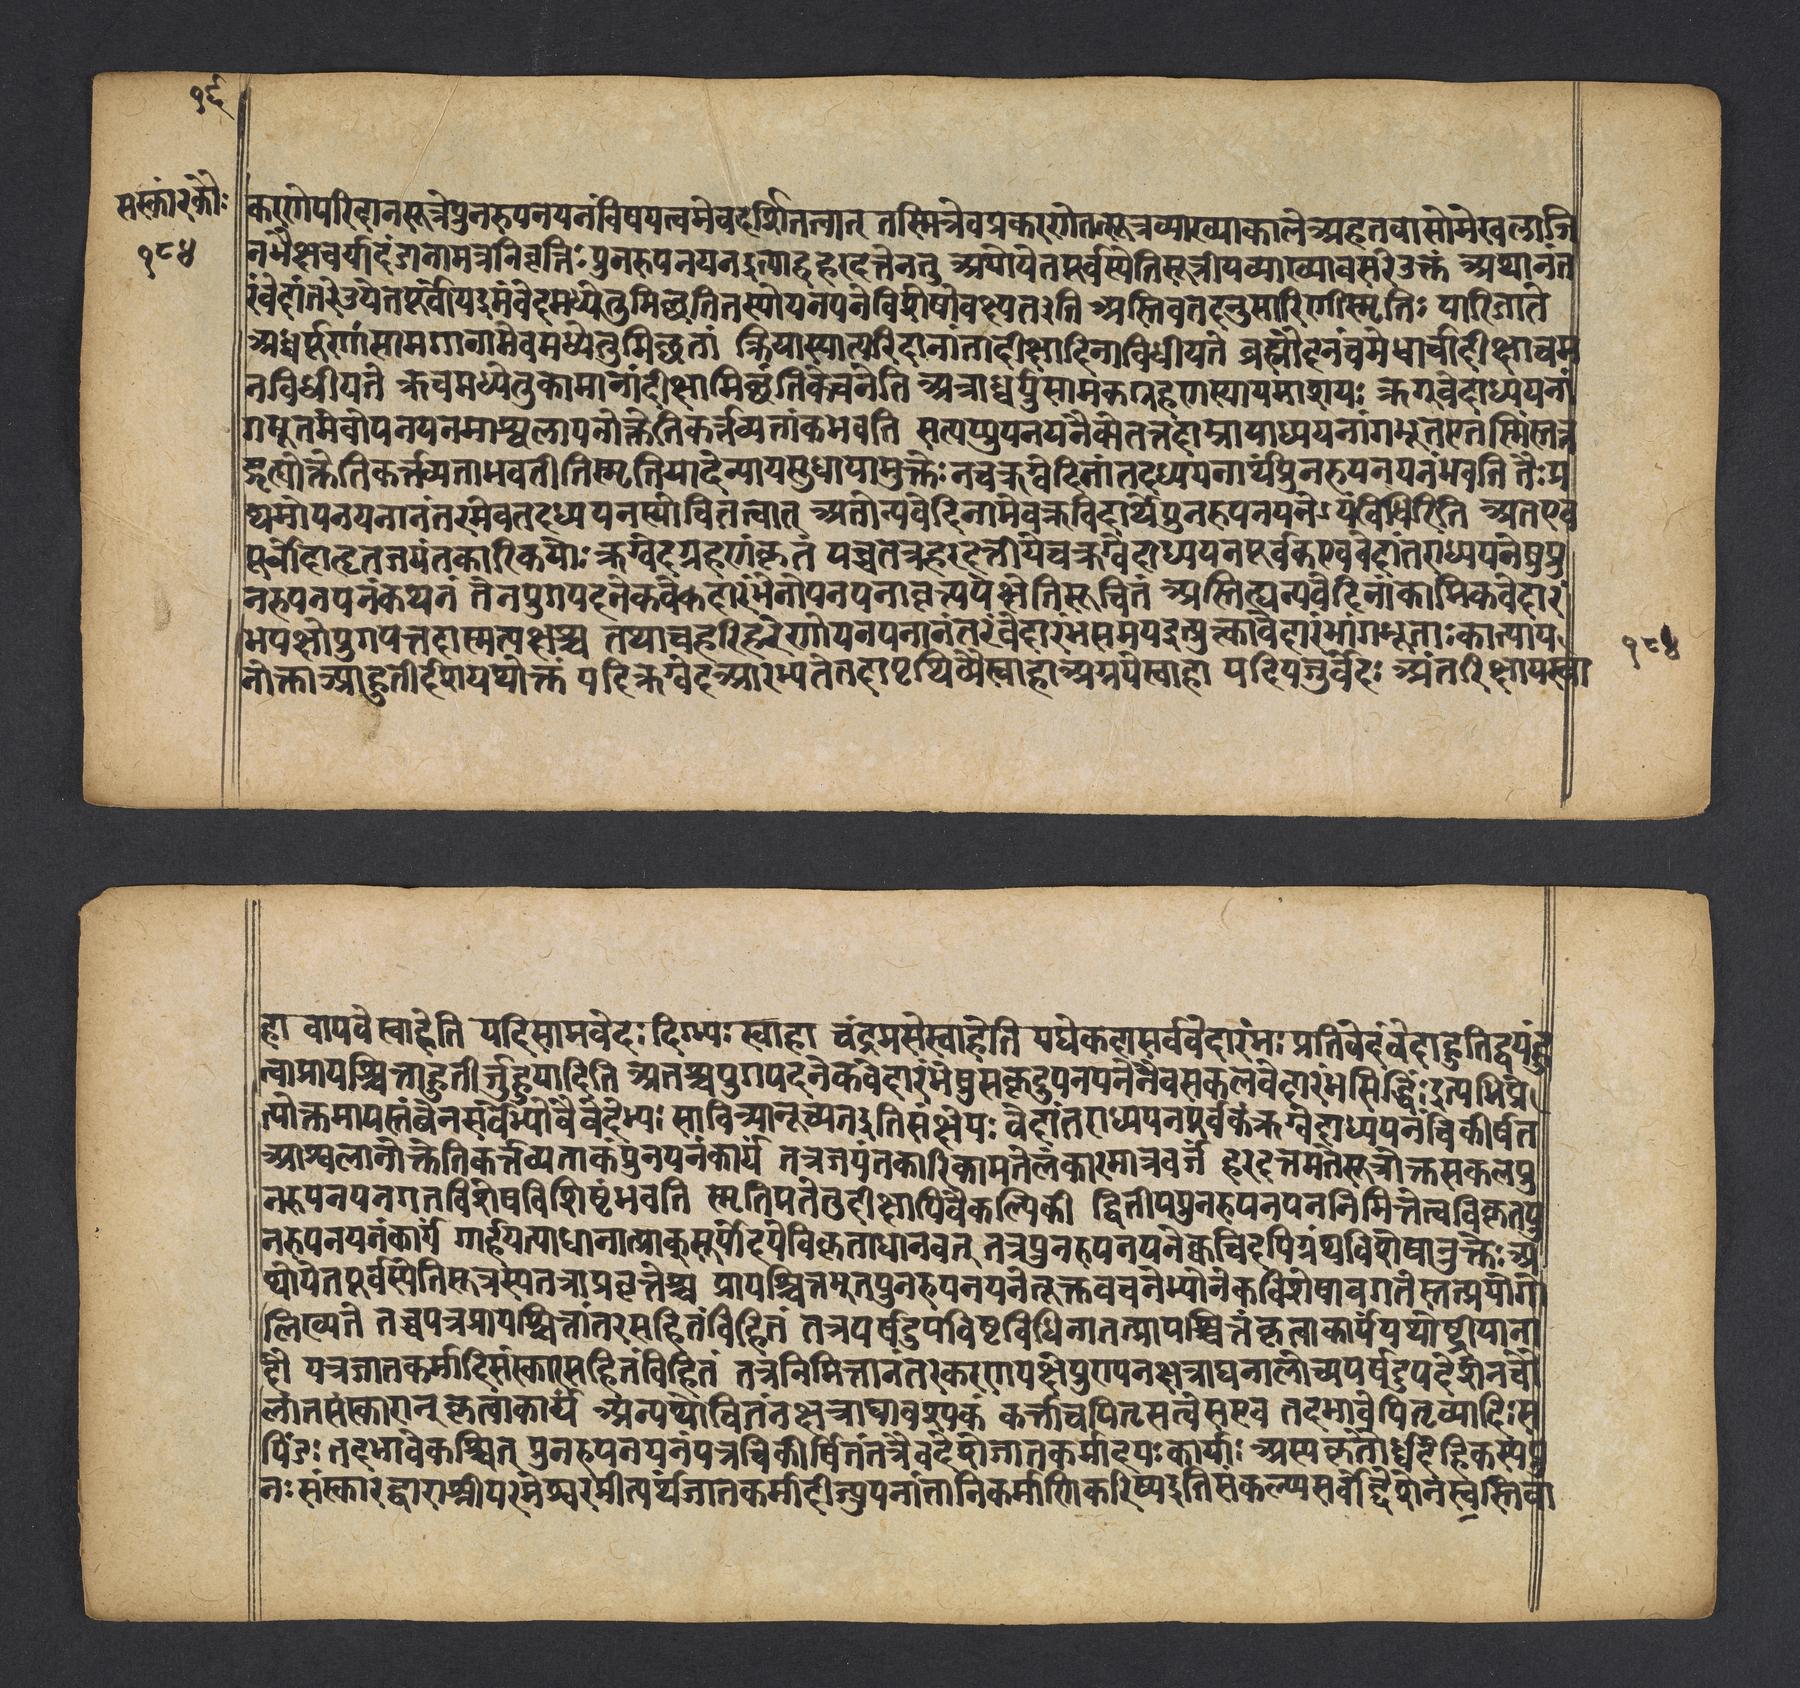 १६
सस्कांरकौः
१८४
कारणेपरिदानसूत्रेपुनरुपनेयनंविषयत्वमेवदर्शितत्वात् तस्मिन्नेवप्रकारणेतत्सूत्रव्याख्याकालेअहतवासोमेखलाजि
नंभैक्षचर्यादंडानामत्रनिवृत्तिः पुनरुपनयनइत्याह हरदत्तेनतु अथोपेतपूर्वस्येतिसूत्रीयव्याख्यावसरेउक्तं अथानंत
रंवेदांतरेउपेतपूर्वोयइमंवेदमध्येतुमिच्छतितस्योपनयनेविशेषोवक्ष्यतइति अस्तिचतदनुसारिणीस्मृतिः पारिजाते
अध्वर्यूणांसामगानामेवमध्येतुमिच्छतां क्रियास्यात्परिदानांतादीक्षादिनाविधीयते ब्रह्मौदनंचमेधार्चादीक्षाचम
नविधीयते ऋचमध्येतुकामानांदीक्षामिच्छंतिकेचनेति अत्राध्वर्युसामकग्रहणस्यायमाशयः ऋग्वेदाध्ययनां
गभूतमेवोपनयनमाश्वलायनोक्तेतिकर्त्तव्यताकंभवति सत्यप्युपनयनैक्येतत्तछाखाध्ययनांगभूतेएतस्मिंस्तत्र
द्गृह्योक्तेतिकर्त्तव्यताभवतीतिस्मृतिपादेन्यायसुधायामुक्तेः नचऋग्वेदिनांतदध्ययनार्थंपुनरुपनयनंभवति तैः प्र
थमोपनयनानंतरमेवतदध्ययनस्योचितत्वात् अतोन्यवेदिनामेवऋग्विदार्थेपुनरुपनयनेऽयंविधिरिति अतएव
पूर्वोदाहृतजयंतकारिकयोः ऋग्वेदग्रहणंकृतं यच्चतत्रहरदत्तीयेचऋग्वेदाध्ययनपूर्वकएववेदांतराध्ययनेषुपु
नरुपनयनंकथनं तेनयुगपदनेकवेदारंभेनोपनयनावृत्त्यपेक्षेतिसूचितं अस्तिह्यन्यवेदिनांकामिकवेदारं
भपक्षोयुगपत्तदास्मत्पक्षश्च तथाचहरिहरेणोपनयनानंतरंवेदारंभसमयइत्युक्त्कावेदारंभांगभूताः कात्याय
नोक्ताआहुतीर्दर्शयथोक्तं यदिऋग्वेदआरभ्यतेतदापृथिव्यैस्वाहाअग्नयेस्वाहा यदियजुर्वेदः अंतरिक्षायस्वा
१८४
हा वायवे स्वाहेति यदिसामवेदः दिग्भ्यः स्वाहा चंद्रमसेस्वाहेति यद्येकदासर्ववेदारंभः प्रतिवेदंवेदाहुतिद्वयंहु
त्वाप्रायश्चित्ताहुतीर्जुहुयादिति अतश्चयुगपदनेकवेदारंभेषुसकृदुपनयनेनैवसकलवेदारंभसिद्धिः इत्यभिप्रे
त्योक्तमापस्तंबेनसर्वेभ्योवैवेदेभ्यः सावित्र्यानूच्यतइतिसंक्षेपः वेदांतराध्ययनपूर्वकंऋग्वेदाध्ययनंचिकीर्षत
आश्वलानोक्तेतिकर्त्तव्यताकंपुनयनंकार्यं तत्रजयंतकारिकामतेलंकारमात्रवर्जं हरदत्तमतेसूत्रोक्तसकलपु
नरुपनयनगतविशेषविशिष्टंभवति स्मृतिमतेतुदीक्षापिवैकल्पिकी द्वितीयपुनरुपनयननिमित्तेत्वविकृतपु
नरुपनयनंकार्यं गार्हपत्याधानात्प्राक्सूर्योदयेविकृताधानवत् तत्रपुनरुपनयनेक्वचिदपिग्रंथविशेषानुक्तेः अ
थोपेतपूर्वस्येतिसूत्रस्यतत्राप्रवृत्तेश्च प्रायश्चित्तभूतपुनरुपनयनेतूक्तवचनेभ्योनेकविशेषावगतेस्तत्प्रयोगो
लिख्यते तच्चयत्रप्रायश्चित्तांतरसहितंविहितं तत्रपर्षदुपविष्टविधिनातत्प्रायश्चित्तंकृत्वाकार्यंयथोष्ट्रीपाना
दौ यत्रजातकर्मादिसंस्कारसहितंविहितं तत्रनिमित्तानंतरकरणपक्षेपुण्यनक्षत्राद्यनालोच्यपर्षदुपदेशेनचौ
लांतसंस्कारान् कृत्वाकार्यं अन्यथोचितंनक्षत्राद्यावश्यकं कर्त्ताचपितृसत्वेसएव तदभावेपितृव्यादिःस
पिंडः तदभावेकश्चित् पुनरुपनयनंयत्रचिकीर्षितंतत्रैवदेशेजातकर्मादयः कार्याः अस्यकृतौर्ध्वदेहिकस्यपु
नः संस्कारद्वाराश्रीपरमेश्वरप्रीत्यर्थंजातकर्मादीन्युपनांतानिकर्माणिकरिष्यइतिसंकल्प्यसर्वोद्देशेनस्वस्तिवा